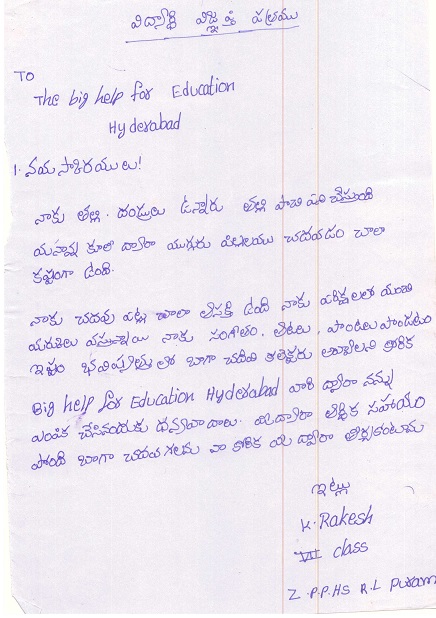 విద్యార్థి విజ్ఞప్తి పత్రము
TO
The big help for Education
Hyderabad
1. నయసాకిరయులు!
నాకు తల్లి. దండ్రులు ఉన్నారు తల్లి పాచి పని చేస్తుంది
కూలి ద్వారా ముగ్గరు పిల్లలము చదవడం చాలా
కష్టంగా ఉంది.
నాకు చదువు పట్ల చాలా ఆసక్తి ఉంది నాకు పరీక్షలలో మంచి
వస్తున్నాయి నాకు సంగీతం, ఆటలు, పాటలు పాడటం
ఇష్టం భవిష్యత్తు లో బాగా చదివి కలెక్టరు అవ్వాలని కోరిక
Big help for Education Hyderabad వారి ద్వారా నన్ను
ఎంపిక చేసినందుకు ధన్యవాదాలు. మీ ద్వారా ఆర్థిక సహాయం
పొంది బాగా చదవగలను నా కోరిక మీ ద్వారా తీర్చుకుంటాను
ఇట్లు
K. Rakesh
VII class
Z.P.P.HS R.L Puram